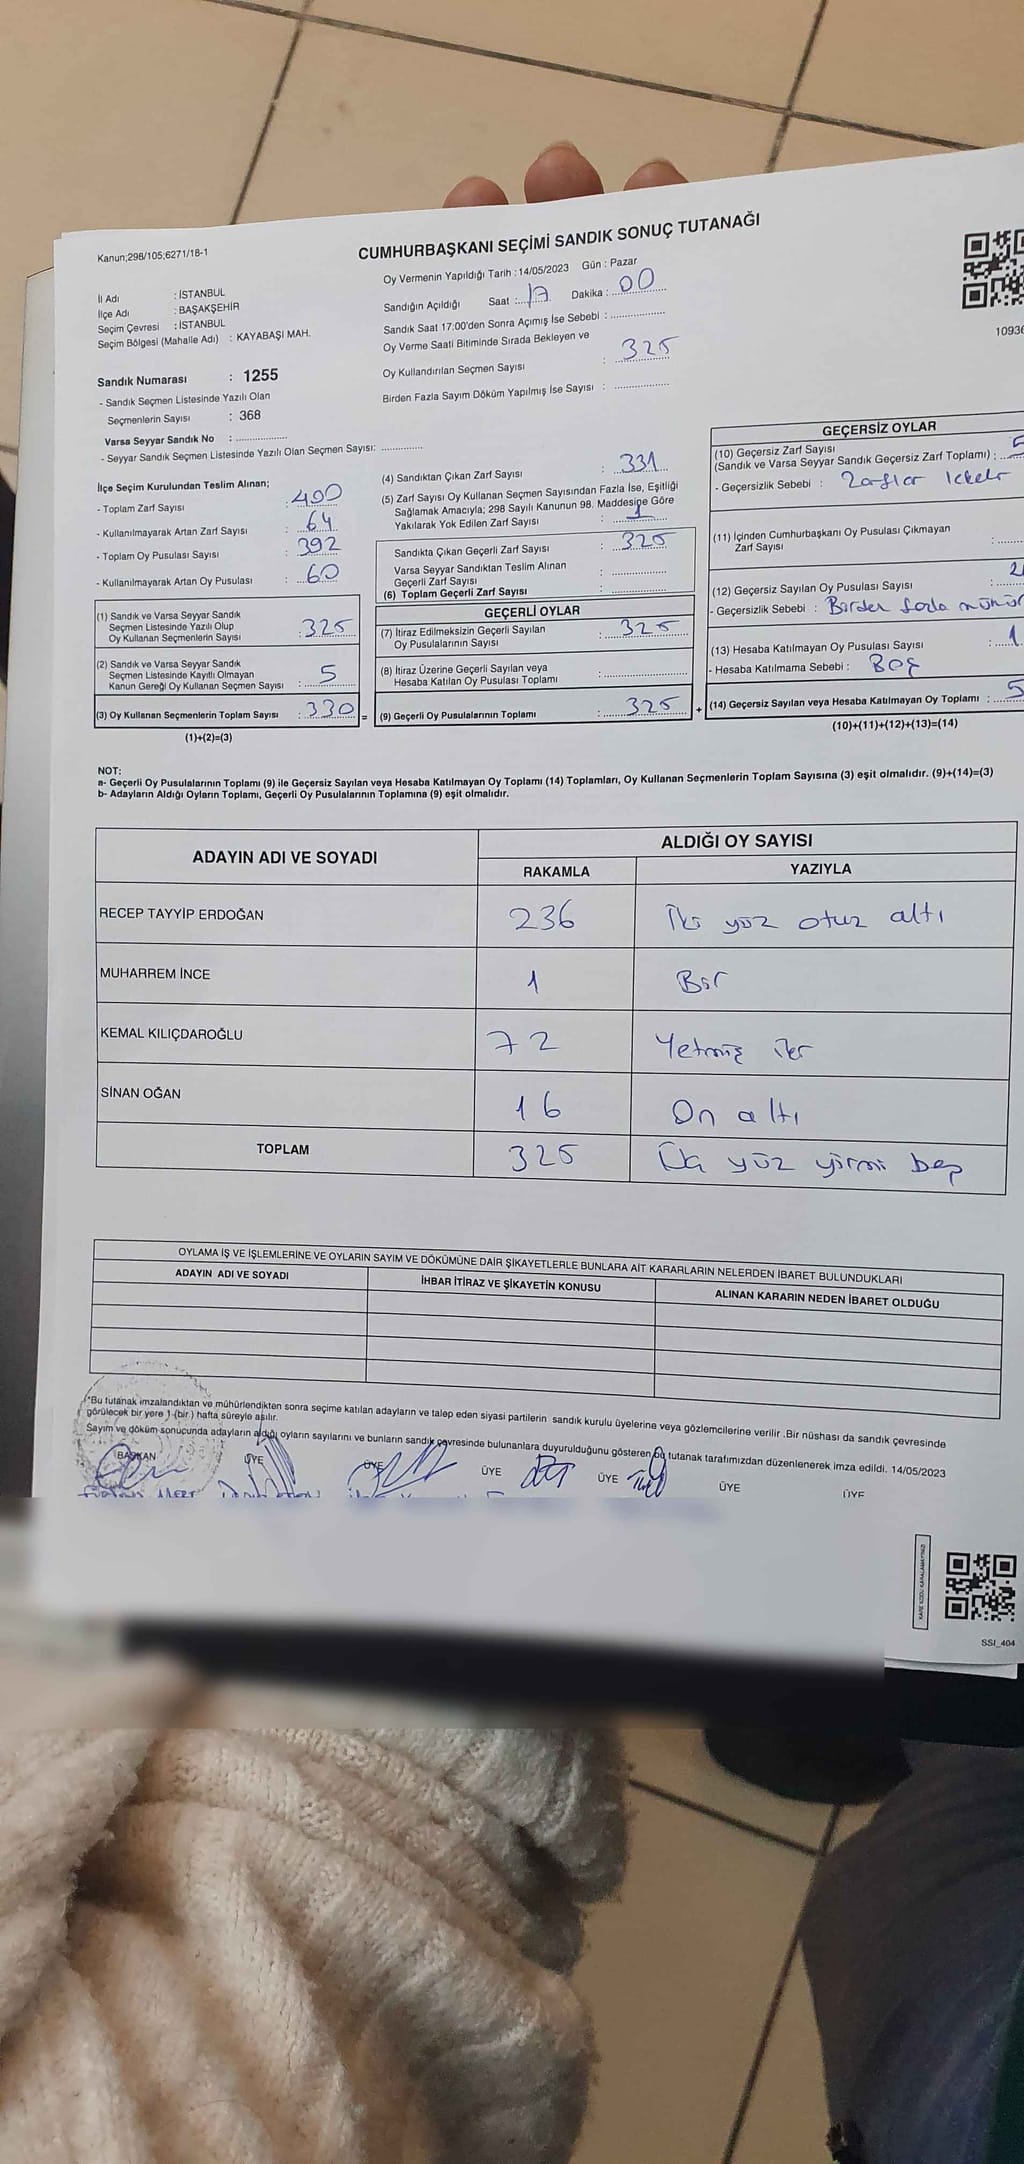 Kanun;298/105;6271/18-1
CUMHURBAŞKANI SEÇİMİ SANDIK SONUÇ TUTANAĞI
Oy Vermenin Yapıldığı Tarih : 14/05/2023 Gün : Pazar
İl Adı : İSTANBUL
İlçe Adı : BAŞAKŞEHİR
Seçim Çevresi : İSTANBUL
Seçim Bölgesi (Mahalle Adı) : KAYABAŞI MAH.
Sandığın Açıldığı Saat : 17 Dakika : 00
Sandık Saat 17:00'den Sonra Açımış İse Sebebi :
Oy Verme Saati Bitiminde Sırada Bekleyen ve
Oy Kullandırılan Seçmen Sayısı : 325
Birden Fazla Sayım Döküm Yapılmış İse Sayısı :
1093
Sandık Numarası : 1255
- Sandık Seçmen Listesinde Yazılı Olan
Seçmenlerin Sayısı : 368
Varsa Seyyar Sandık No :
- Seyyar Sandık Seçmen Listesinde Yazılı Olan Seçmen Sayısı:
İlçe Seçim Kurulundan Teslim Alınan;
- Toplam Zarf Sayısı : 400
- Kullanılmayarak Artan Zarf Sayısı : 64
- Toplam Oy Pusulası Sayısı : 392
- Kullanılmayarak Artan Oy Pusulası : 60
(1) Sandık ve Varsa Seyyar Sandık
Seçmen Listesinde Yazılı Olup
Oy Kullanan Seçmenlerin Sayısı : 325
(2) Sandık ve Varsa Seyyar Sandık
Seçmen Listesinde Kayıtlı Olmayan
Kanun Gereği Oy Kullanan Seçmen Sayısı : 5
(3) Oy Kullanan Seçmenlerin Toplam Sayısı : 330 =
(1)+(2)=(3)
(4) Sandıktan Çıkan Zarf Sayısı : 331
(5) Zarf Sayısı Oy Kullanan Seçmen Sayısından Fazla İse, Eşitliği
Sağlamak Amacıyla; 298 Sayılı Kanunun 98. Maddesine Göre
Yakılarak Yok Edilen Zarf Sayısı : 1
Sandıkta Çıkan Geçerli Zarf Sayısı : 325
Varsa Seyyar Sandıktan Teslim Alınan
Geçerli Zarf Sayısı :
(6) Toplam Geçerli Zarf Sayısı :
GEÇERLİ OYLAR
(7) İtiraz Edilmeksizin Geçerli Sayılan
Oy Pusulalarının Sayısı : 325
(8) İtiraz Üzerine Geçerli Sayılan veya
Hesaba Katılan Oy Pusulası Toplamı :
(9) Geçerli Oy Pusulalarının Toplamı : 325 +
GEÇERSİZ OYLAR
(10) Geçersiz Zarf Sayısı
(Sandık ve Varsa Seyyar Sandık Geçersiz Zarf Toplamı) :
- Geçersizlik Sebebi : Zarflar
(11) İçinden Cumhurbaşkanı Oy Pusulası Çıkmayan
Zarf Sayısı :
(12) Geçersiz Sayılan Oy Pusulası Sayısı :
- Geçersizlik Sebebi : Birden fazla mühür
(13) Hesaba Katılmayan Oy Pusulası Sayısı : 1
- Hesaba Katılmama Sebebi : Boş
(14) Geçersiz Sayılan veya Hesaba Katılmayan Oy Toplamı : 5
(10)+(11)+(12)+(13)=(14)
NOT:
a- Geçerli Oy Pusulalarının Toplamı (9) ile Geçersiz Sayılan veya Hesaba Katılmayan Oy Toplamı (14) Toplamları, Oy Kullanan Seçmenlerin Toplam Sayısına (3) eşit olmalıdır. (9)+(14)=(3)
b- Adayların Aldığı Oyların Toplamı, Geçerli Oy Pusulalarının Toplamına (9) eşit olmalıdır.
ADAYIN ADI VE SOYADI ALDIĞI OY SAYISI
RAKAMLA YAZIYLA
RECEP TAYYİP ERDOĞAN 236 İki yüz otuz altı
MUHARREM İNCE 1 Bir
KEMAL KILIÇDAROĞLU 72 Yetmiş iki
SİNAN OĞAN 16 On altı
TOPLAM 325 Üç yüz yirmi beş
OYLAMA İŞ VE İŞLEMLERİNE VE OYLARIN SAYIM VE DÖKÜMÜNE DAİR ŞİKAYETLERLE BUNLARA AİT KARARLARIN NELERDEN İBARET BULUNDUKLARI
ADAYIN ADI VE SOYADI İHBAR İTİRAZ VE ŞİKAYETİN KONUSU ALINAN KARARIN NEDEN İBARET OLDUĞU
*Bu tutanak imzalandıktan ve mühürlendikten sonra seçime katılan adayların ve talep eden siyasi partilerin sandık kurulu üyelerine veya gözlemcilerine verilir .Bir nüshası da sandık çevresinde
görülecek bir yere 1 (bir ) hafta süreyle asılır.
Sayım ve döküm sonucunda adayların aldığı oyların sayılarını ve bunların sandık çevresinde bulunanlara duyurulduğunu gösteren bu tutanak tarafımızdan düzenlenerek imza edildi. 14/05/2023
BAŞKAN ÜYE ÜYE ÜYE ÜYE ÜYE ÜYE
KARE KODU KARALAMAYINIZ
SSI_404